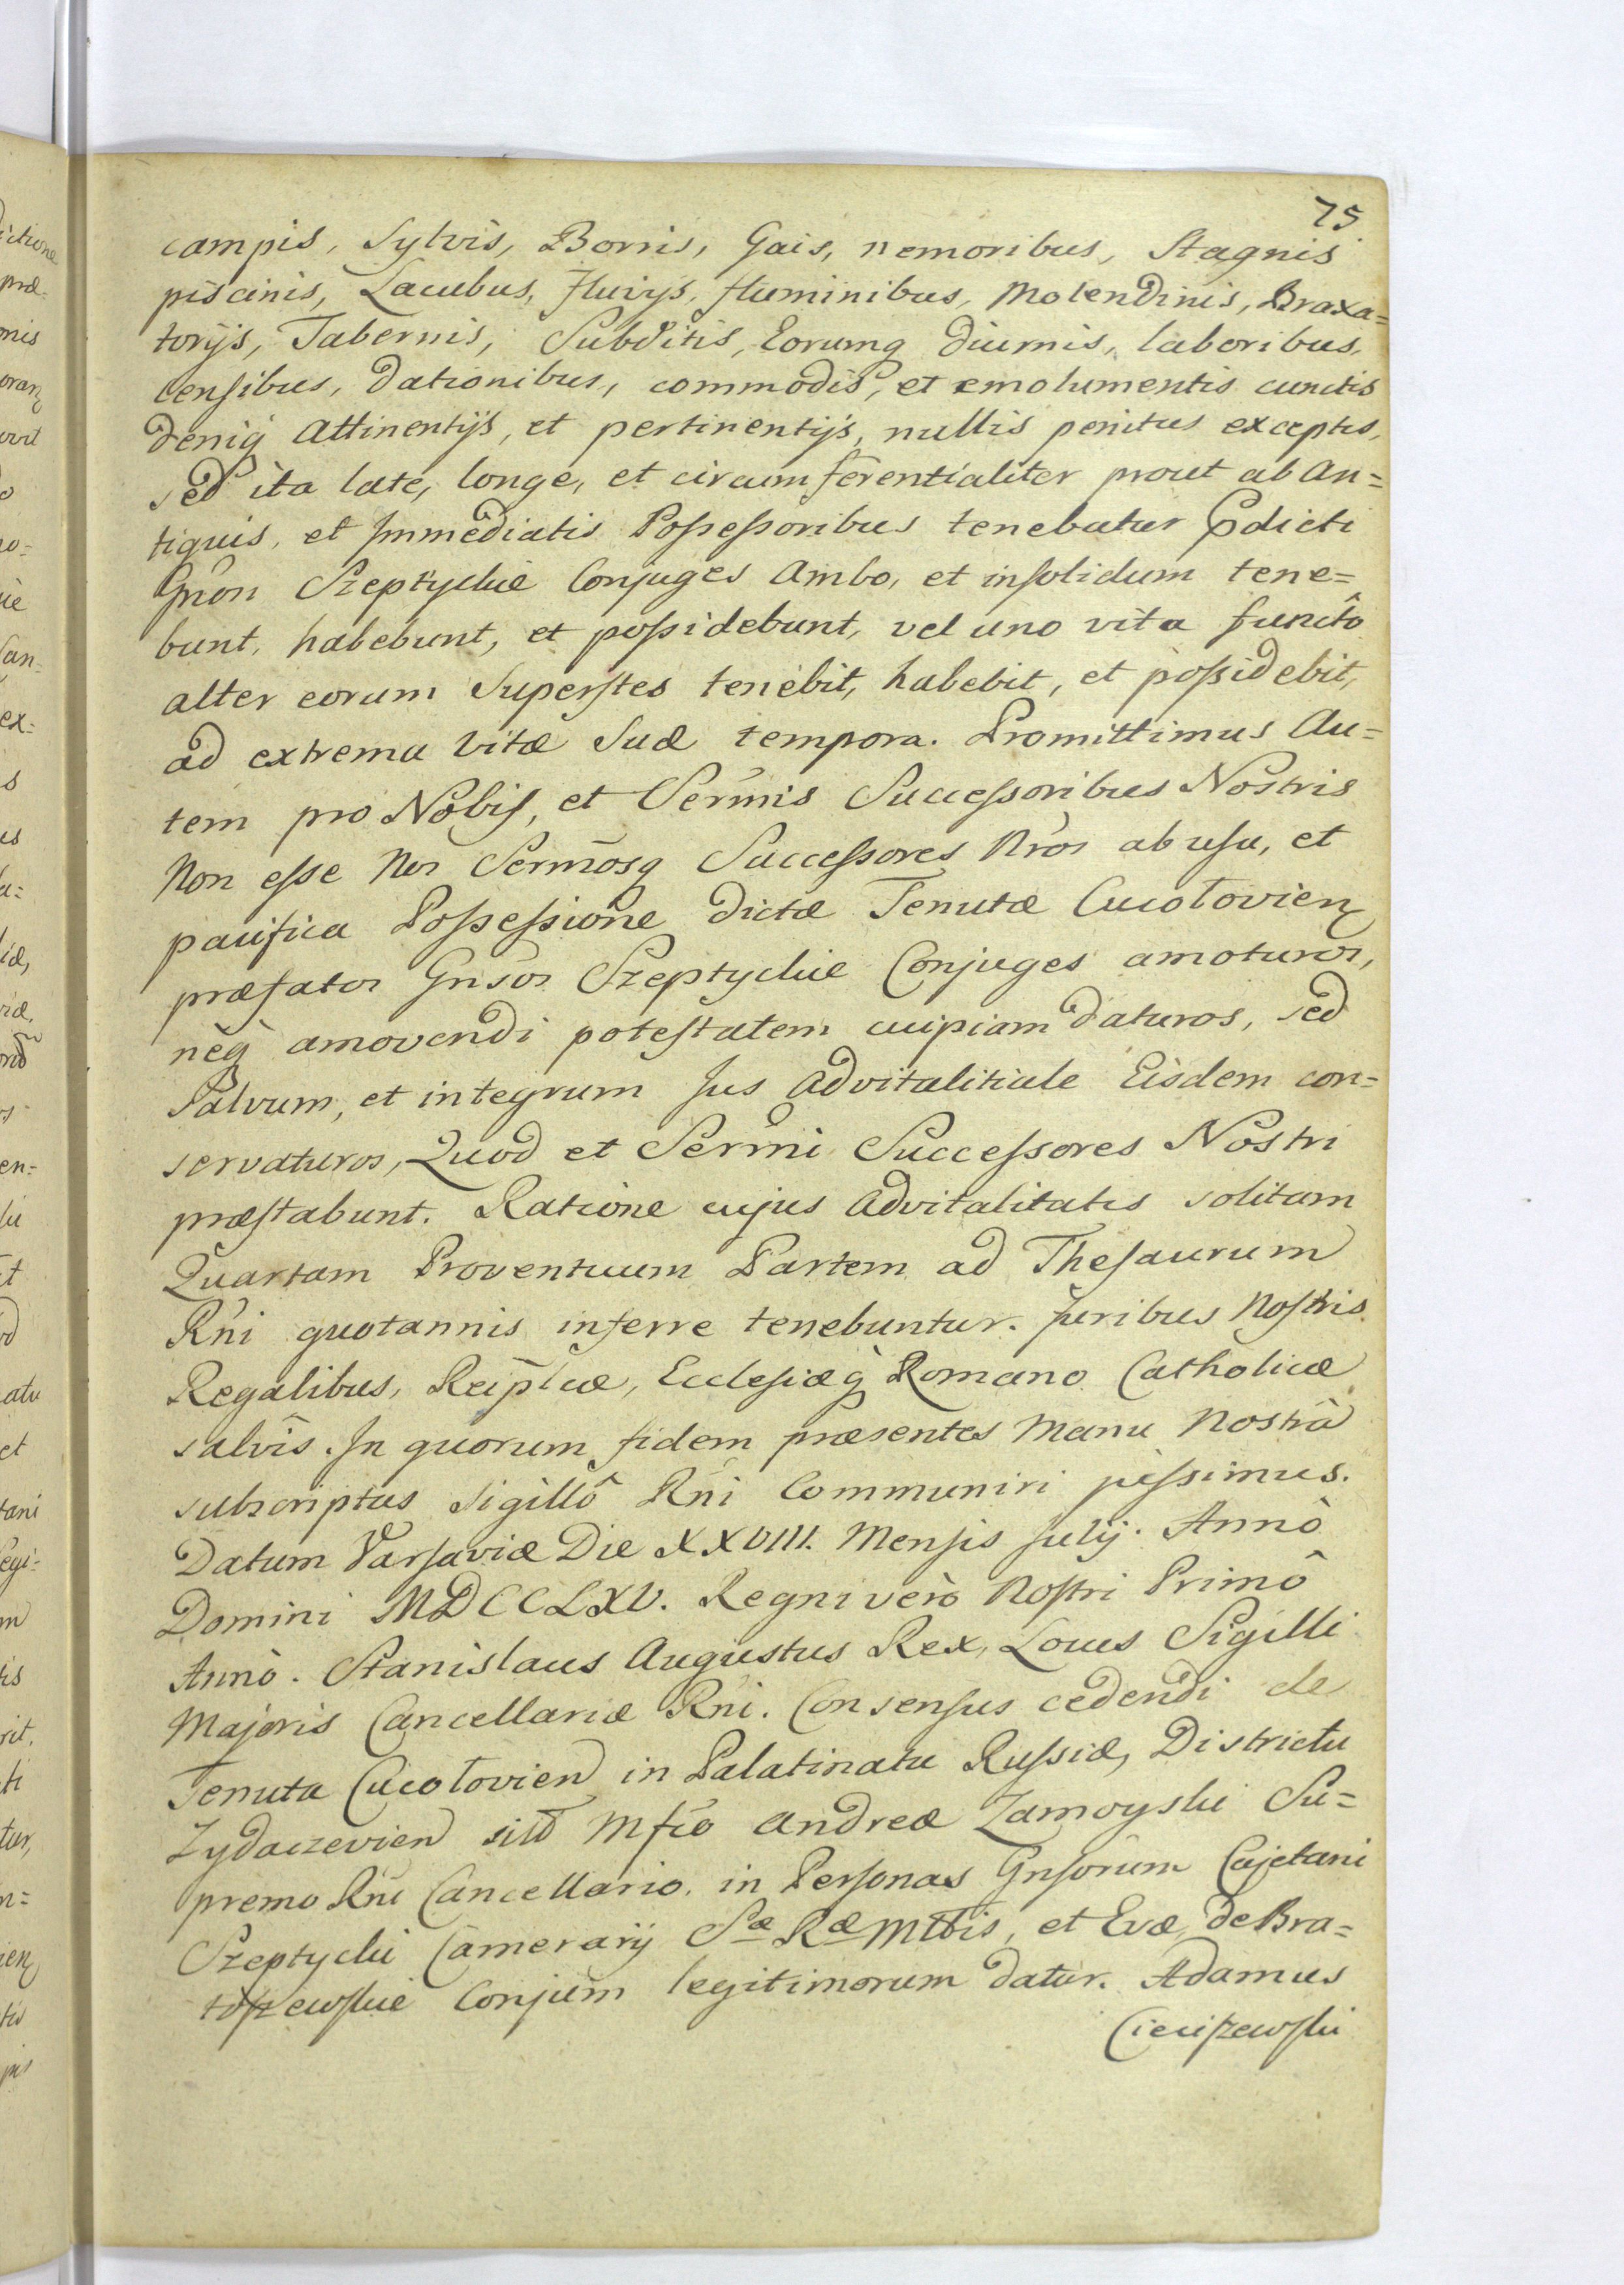 75
campis, Sylvis, Borris, Gais, nemoribus, Stagnis
piscinis, Lacubus, fluvijs, fluminibus, Molendinis, Braxa=
torijs, Tabernis, Subditis, Eorumq diurnis, laboribus,
censibus, dationibus, commodis, et emolumentis cunctis
deniq attinentijs, et pertinentijs, nullis penitus exceptis,
sed ita late, longe, et circumferentialiter prout ab an=
tiquis, et Immediatis Possessoribus tenebatur Pdicti
Gnsi Szeptyckie Conjuges ambo, et insolidum tene=
bunt, habebunt, et possidebunt, vel uno vita functô
alter eorum Superstes tenebit, habebit, et possidebit,
ad extrema Vitæ Suæ tempora. Promittimus Au=
tem pro Nobis, et Sermis Successoribus Nostris
Non esse Nos Sermosq Successores Nros ab usu, et
pacifica Possessione dictæ Tenutæ Cucołovien
præfatos Gnsos Szeptyckie Conjuges amoturos,
neq amovendi potestatem cuipiam daturos, sed
Salvum, et integrum Jus advitalitiale Eisdem con=
servaturos, Quod et Sermi Successores Nostri
præstabunt. Ratione cujus advitalitatis solitam
Quartam Proventuum Partem ad Thesaurum
Rni quotannis inferre tenebuntur. Juribus Nostris
Regalibus, Reiplcæ, Ecclesiæq Romano Catholicæ
salvis. In quorum fidem præsentes Manu Nostrâ
subscriptas Sigillô Rni Communiri jussimus.
Datum Varsaviæ Die XXVIII. Mensis Julij. Annô
Domini MDCCLXV. Regni verò Nostri Primô
Annô. Stanislaus Augustus Rex, Locus Sigilli
Majoris Cancellariæ Rni. Consensus cedendi de
Tenuta Cucołovien in Palatinatu Russiæ, Districtu
Zydaczevien sitô Mfco Andreæ Zamoyski Su=
premo Rni Cancellario. in Personas Gnsorum Cajetani
Szeptycki Camerarij Sæ Ræ Mttis, et Evæ de Bra=
toszewskie Conjum legitimorum datur. Adamus
Cieciszewski